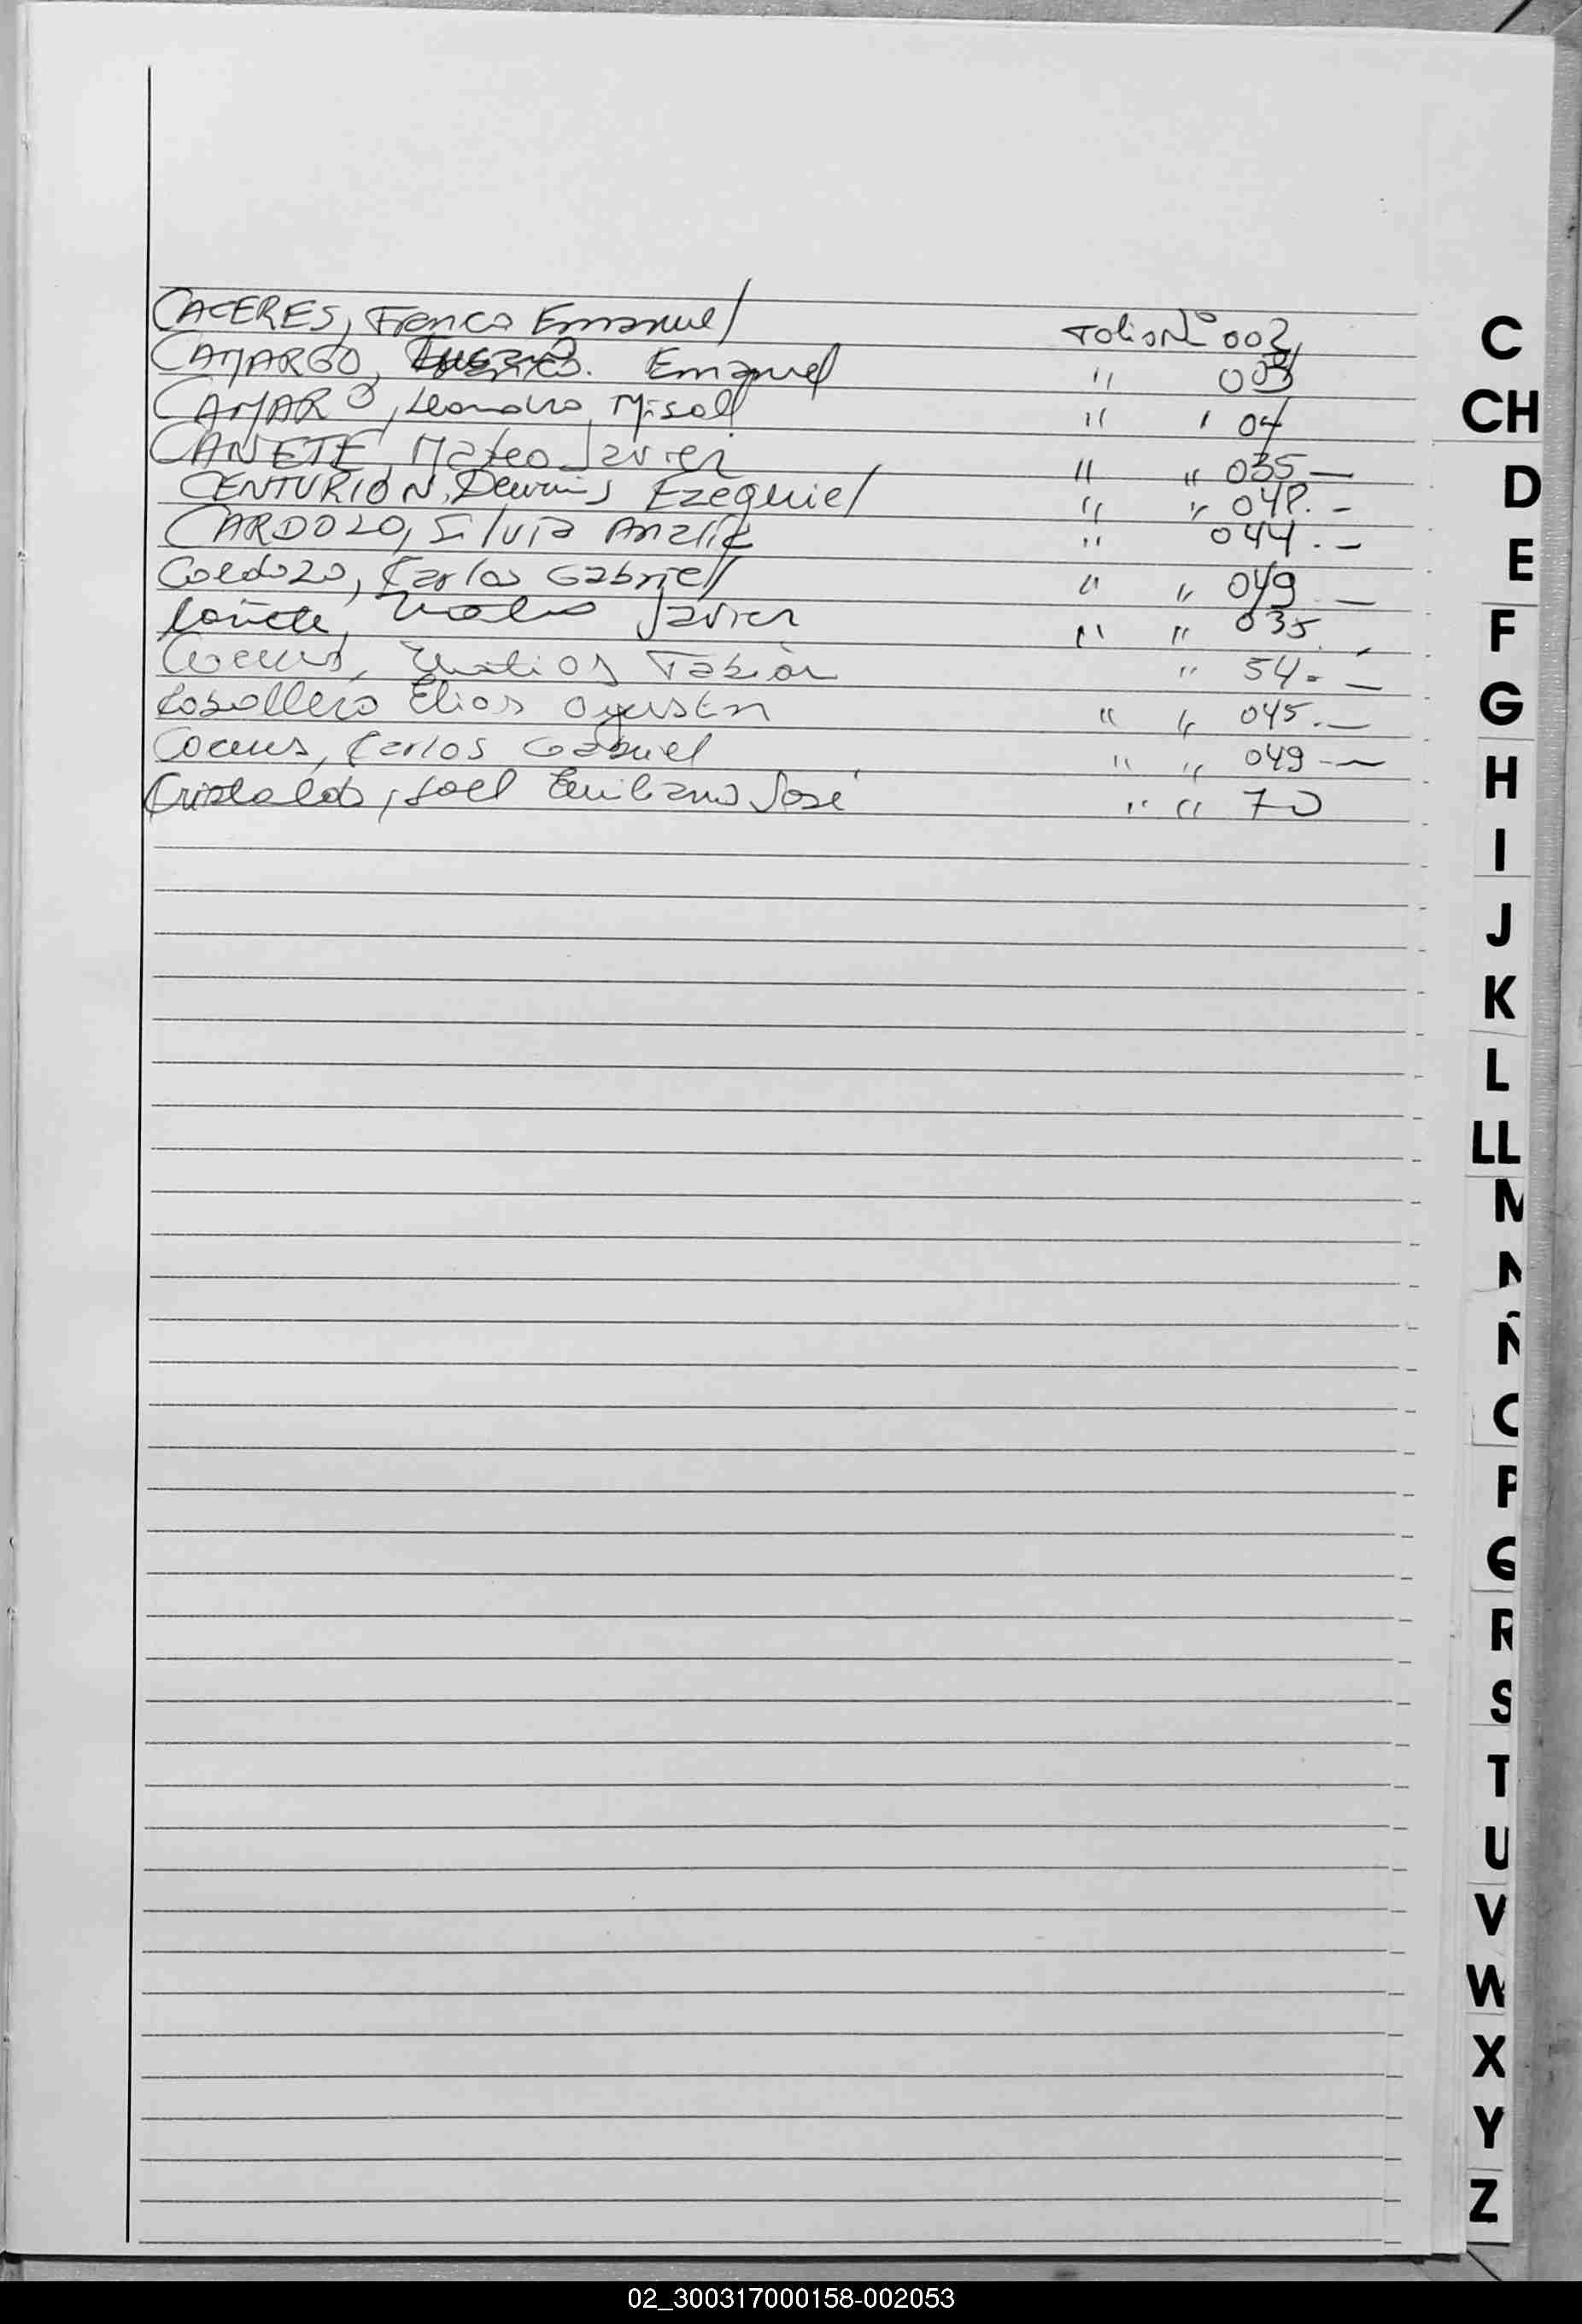 CACERES, Franco Emanuel Folio Nº 002
CAMARGO, Emanuel " 003
CAMARO, Leandro Misael " " 04
CAÑETE, Mateo Javier " " 035 —
CENTURION, Dennis Ezequiel " " 048. -
CARDOZO, Silvia Analia " 044. —
Cardozo, Carlos Gabriel " " 049 —
Cañete, Javier " " 035.
Matias Fabián " 54. —
Caballero Elias Agustin " " 045. —
Carlos Gabriel " " 049 - —
Cristaldo, Joel Emiliano José " " 70
C
CH
D
E
F
G
H
I
J
K
L
LL
M
N
Ñ
O
P
Q
R
S
T
U
V
W
X
Y
Z
02_300317000158-002053